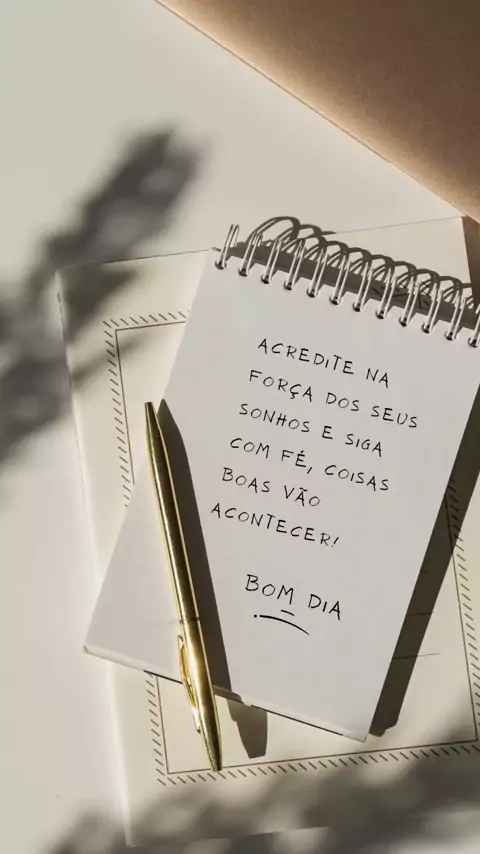 ACREDITE NA
FORÇA DOS SEUS
SONHOS E SIGA
COM FÉ, COISAS
BOAS VÃO
ACONTECER!
BOM DIA